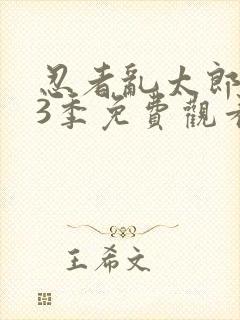 忍者亂太郎
3季免費觀看
王希文